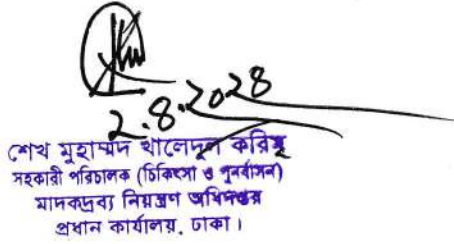 2.8.2028
শেখ মুহাম্মদ খালেদুল করিম
সহকারী পরিচালক (চিকিৎসা ও পুনর্বাসন)
মাদকদ্রব্য নিয়ন্ত্রণ অধিদপ্তর
প্রধান কার্যালয়, ঢাকা।